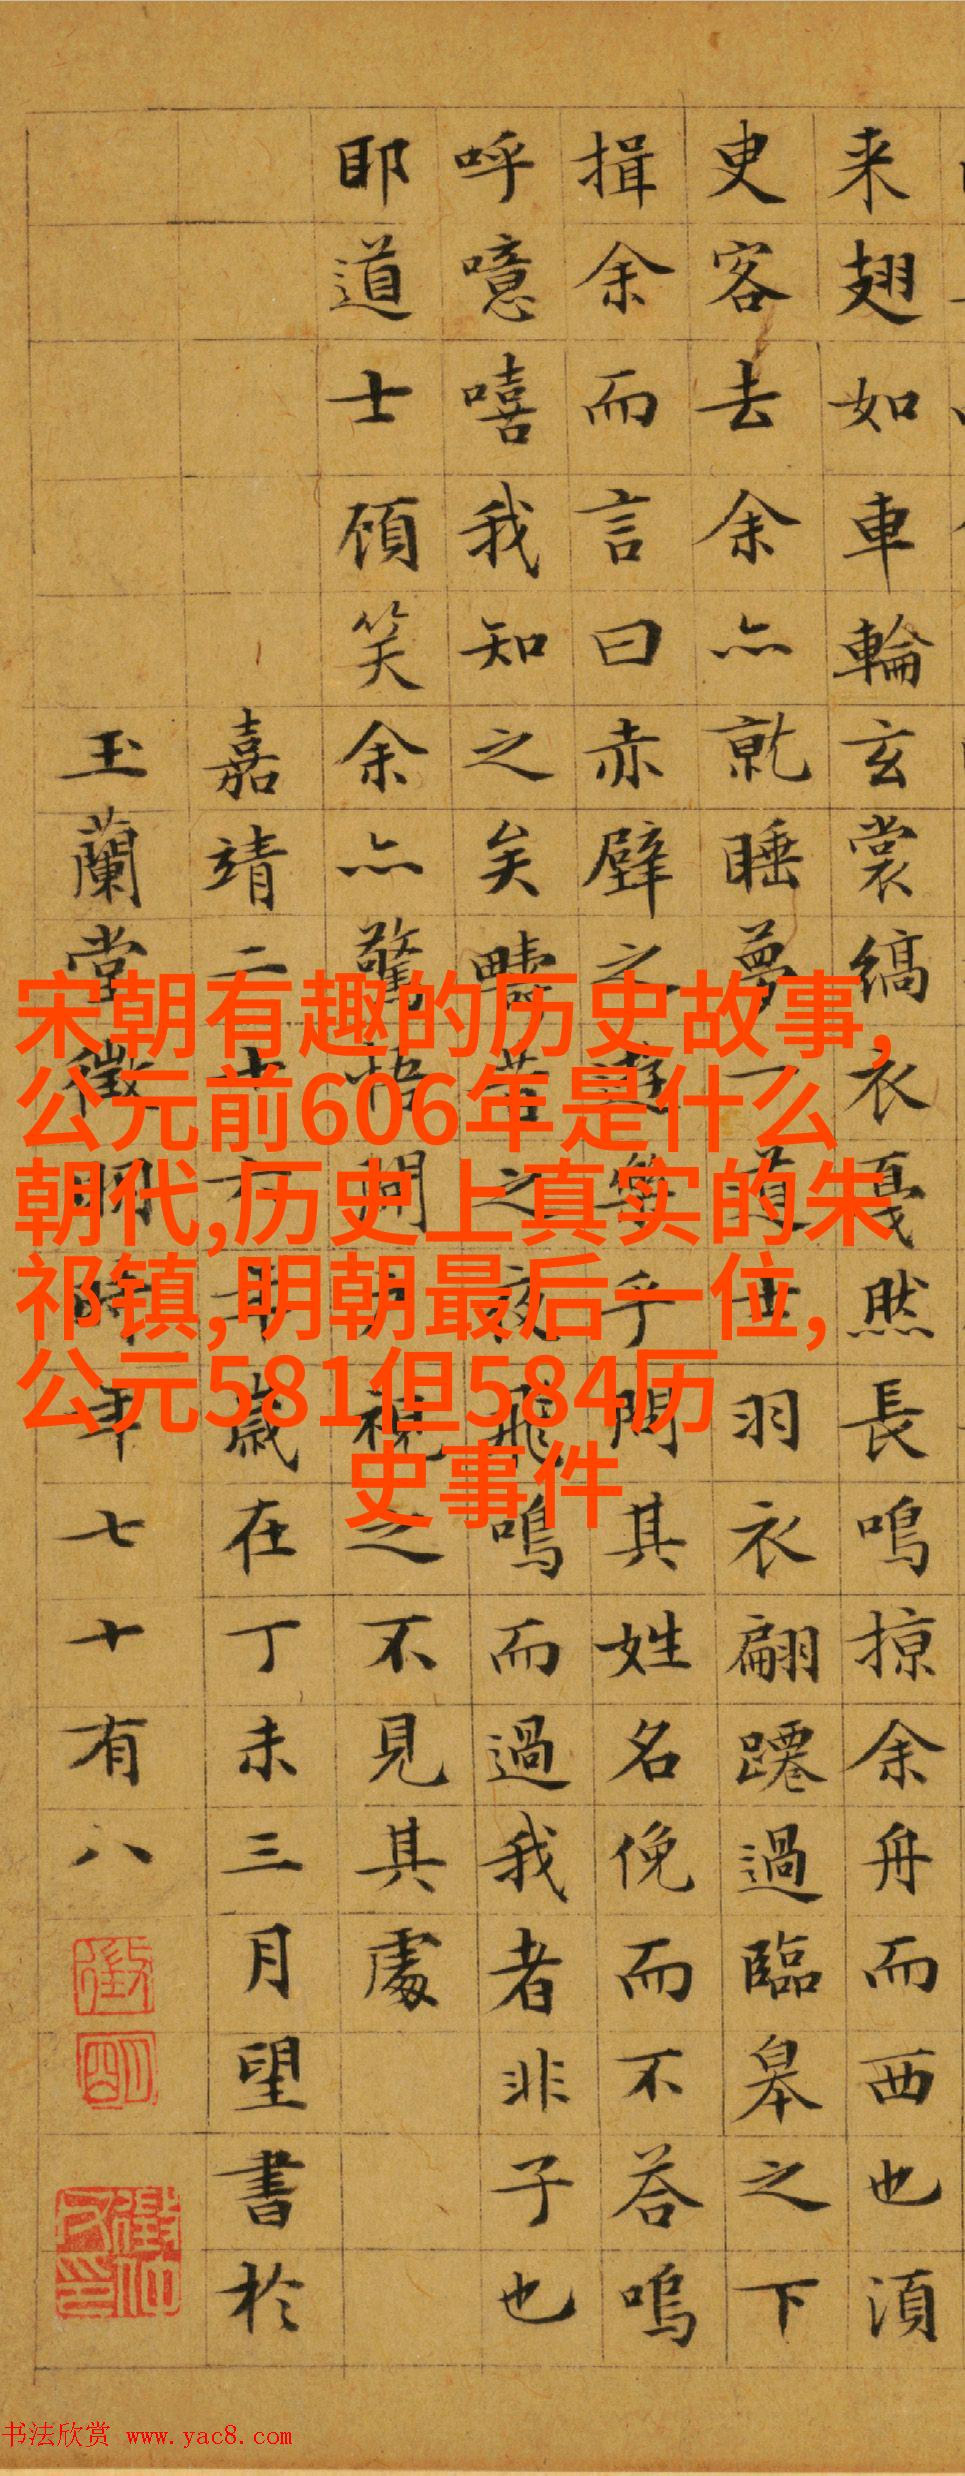 来翅如車輪玄裳縞衣戛然長鳴掠余舟而西也須
臾客去余亦就睡夢一道士羽衣翩躚過臨皋之下
揖余而言曰赤壁之遊樂乎問其姓名俛而不答嗚
呼噫嘻我知之矣疇昔之夜飛鳴而過我者非子也
耶道士顧笑余亦驚悟開户視之不見其處
嘉靖二十六年歲在丁未三月望書於
玉蘭堂徵明時年七十有八
徵
明
宋朝有趣的历史故事,
公元前606年是什么
朝代,历史上真实的朱
祁镇,明朝最后一位,
公元581但584历
史事件
书法欣赏 www.yac8.com